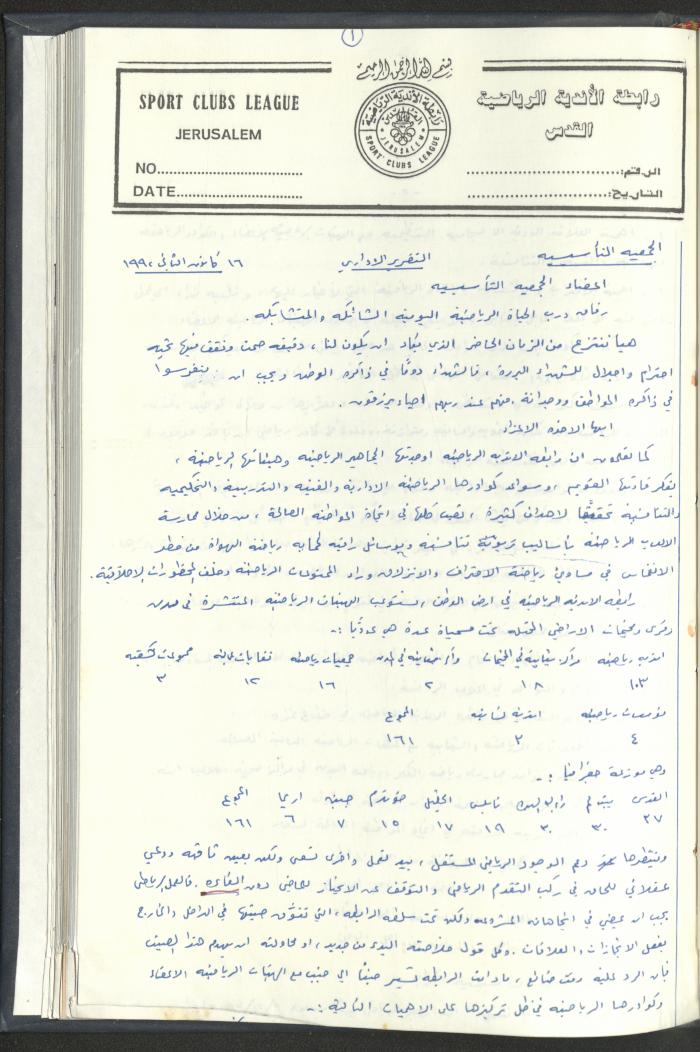 ١
بسم الله الرحمن الرحيم
SPORT CLUBS LEAGUE
JERUSALEM
NO
DATE
رابطة الأندية الرياضية
القدس
SPORT CLUBS LEAGUE
JERUSALEM
رابطة الأندية الرياضية
القدس
الرقم:
التاريخ:
الجمعيه التأسيسيه التقرير الاداري ١٦ كانون الثاني ١٩٩٢
اعضاء الجمعيه التأسيسيه
رفاق درب الحياة الرياضية اليومية الشائكه والمتشابكه.
هيا ننتزع من الزمان الحاضر الذي يكاد ان يكون لنا، دقيقه صمت ونقف فيها تحيه
احترام واجلال للشهداء البررة، فالشهداء دومًا في ذاكره الوطن ويجب ان ينغرسوا
في ذاكره المواطن ووجدانه، فهم عند ربهم احياء يرزقون.
ايها الاخوه الاعزاء
كما تعلمون ان رابطه الانديه الرياضيه اوجدتها الجماهير الرياضيه وهيئاتها الرياضية،
بفكر قادتها القويم، وسواعد كوادرها الرياضيه الادارية والفنيه والتدريبية والتحكيميه
والتنافسية تحقيقًا لاهداف كثيرة، تصب كلها في اتجاة المواطنه الصالحة، من خلال ممارسة
الالعاب الرياضيه بأساليب تربويه تنافسية وبوسائل راقيه لحمايه رياضة الهواة من خطر
الانغماس في مساوئ رياضة الاحتراف والانزلاق وراء الممنوعات الرياضيه وخلف المحظورات الاخلاقية.
رابطه الانديه الرياضيه في ارض الوطن، تستوعب الهيئات الرياضيه المنتشرة في مدن
وقرى ومخيمات الاراضي المحتله تحت مسميات عدة هي عدديًا :-
انديه رياضيه مراكز شبابية في المخيمات جمعيات رياضيه نقابات عماليه مجموعات كشفيه
١٠٣ ١٨ ٢ ١٦ ١٢ ٣
مؤسسات رياضيه انديه نسائيه المجموع
٤ ٣ ١٦١
وهي موزعة جغرافيا :-
القدس بيت لحم رام الله البيره نابلس الخليل طولكرم جنين اريحا المجموع
٢٧ ٣٠ ٣٠ ١٩ ١٧ ١٥ ٧ ٦ ١٦١
دعم الوجود الرياضي المستقل، بيد تعمل واخرى تسعى ولكن بعين ثاقبه ووعي
عقلاني للحاق في ركب التقدم الرياضي والتوقف عن الانحياز دون القاعده. فالعمل الرياضي
يجب ان يمضي في اتجاهاته المشروعه ولكن تحت مظله الرابطه، التي تفوق صيتها في الداخل والخارج
بفعل الانجازات والعلاقات. وكل قول البدء من جديد، او محاولته ان يهدم هذا الصيت
فأن الرد عليه وقت ضائع، مادامت الرابطه تسير جنبًا الى جنب مع الهيئات الرياضيه الاعضاء
وكوادرها الرياضيه في ظل تركيزها على الاهميات التالية :-